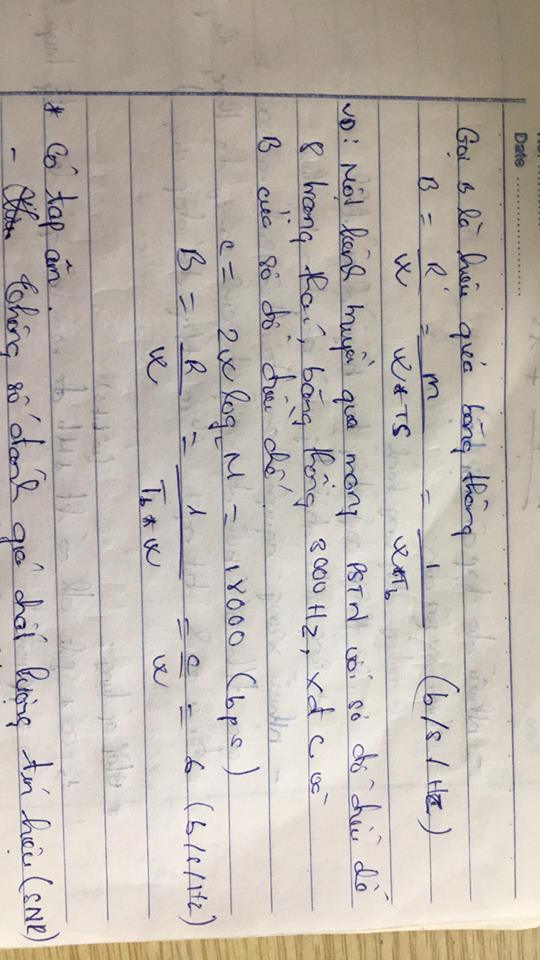 Date ..................
Gọi B là hiệu quả băng thông
B = R / W = m / W*TS = 1 / W*Tb (b/s/Hz)
VD: Một kênh truyền qua mạng PSTN với sơ đồ điều chế
8 trạng thái, băng thông 3000 Hz, xđ C và
B của sơ đồ điều chế.
C = 2W log2 M = 18000 (bps)
B = R / W = 1 / Tb*W = C / W = 6 (b/s/Hz)
* Có tạp âm.
- Thông số đánh giá chất lượng tín hiệu (SNR)